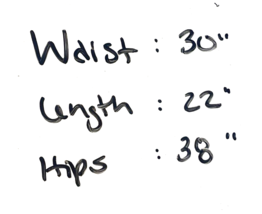 Waist : 30"
Length : 22"
Hips : 38"